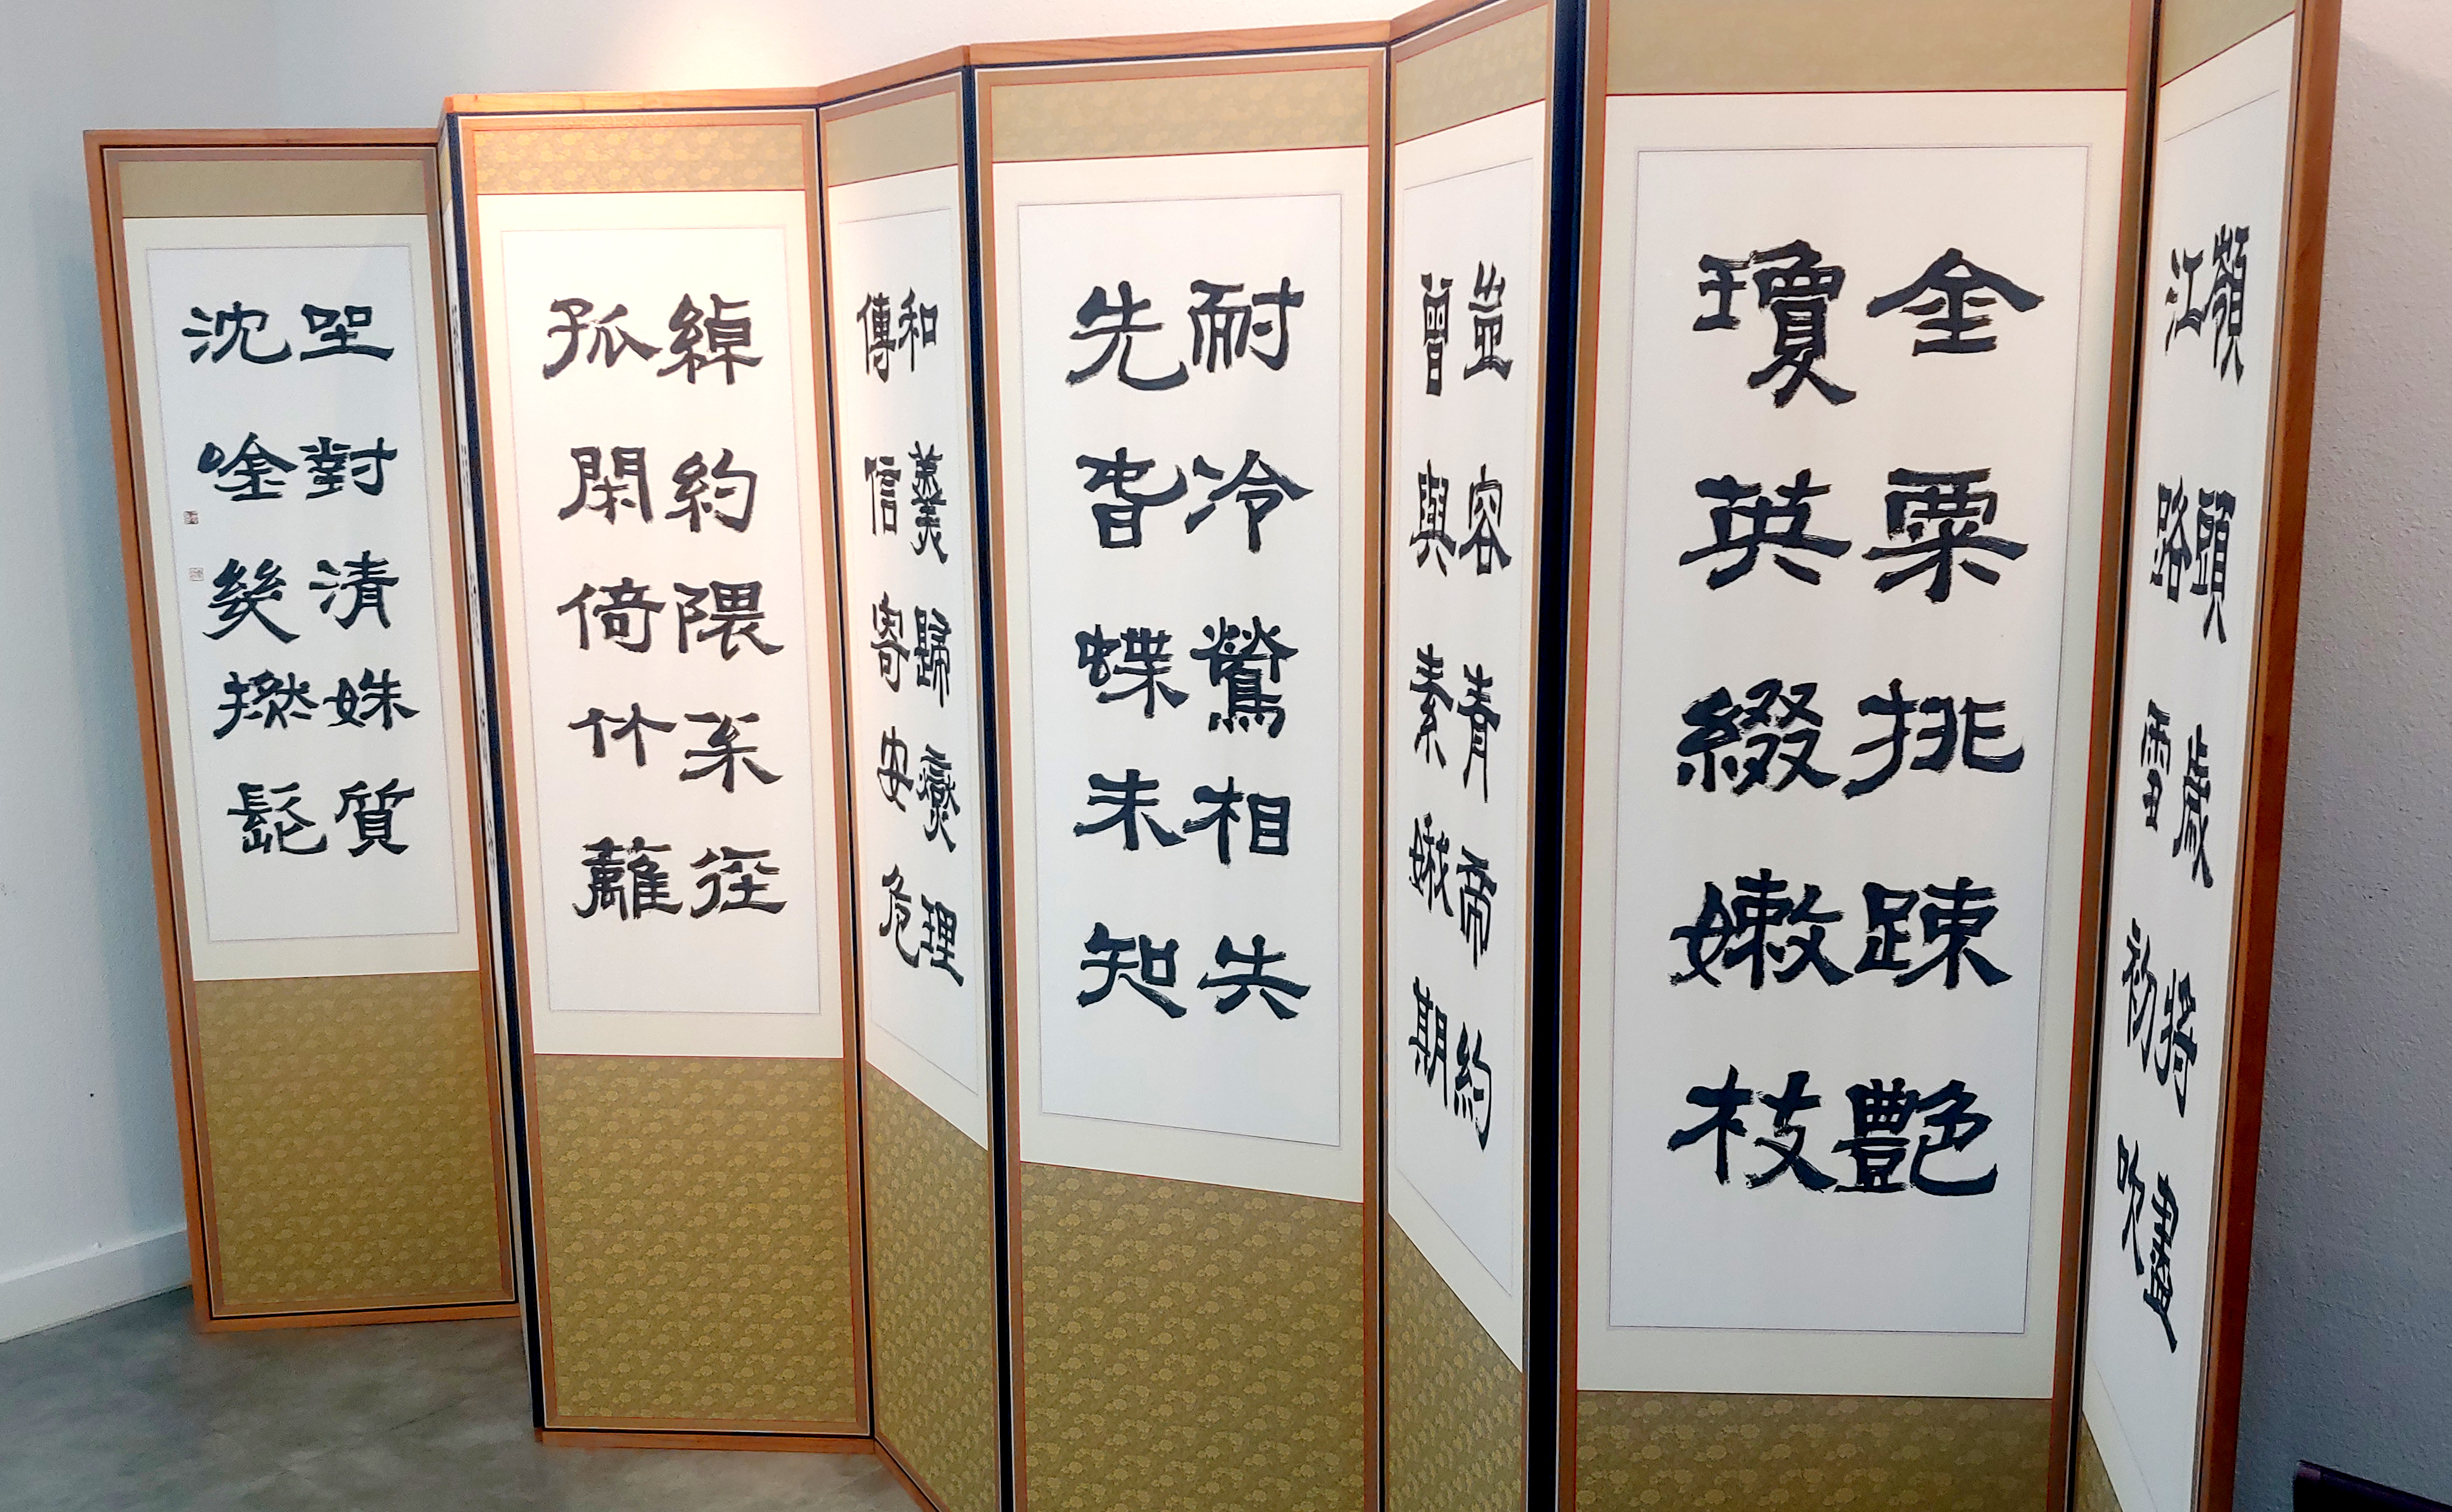 嶺頭歲將盡
江路雪初吹
金粟挑踈艶
瓊英綴嫩枝
豈容青帝約
曾與素娥期
耐冷鶯相失
先旹蝶未知
和羹歸燮理
傳信寄安危
綽約隈徑
孤閑倚竹籬
坐對清姝質
沈唫幾撚髭